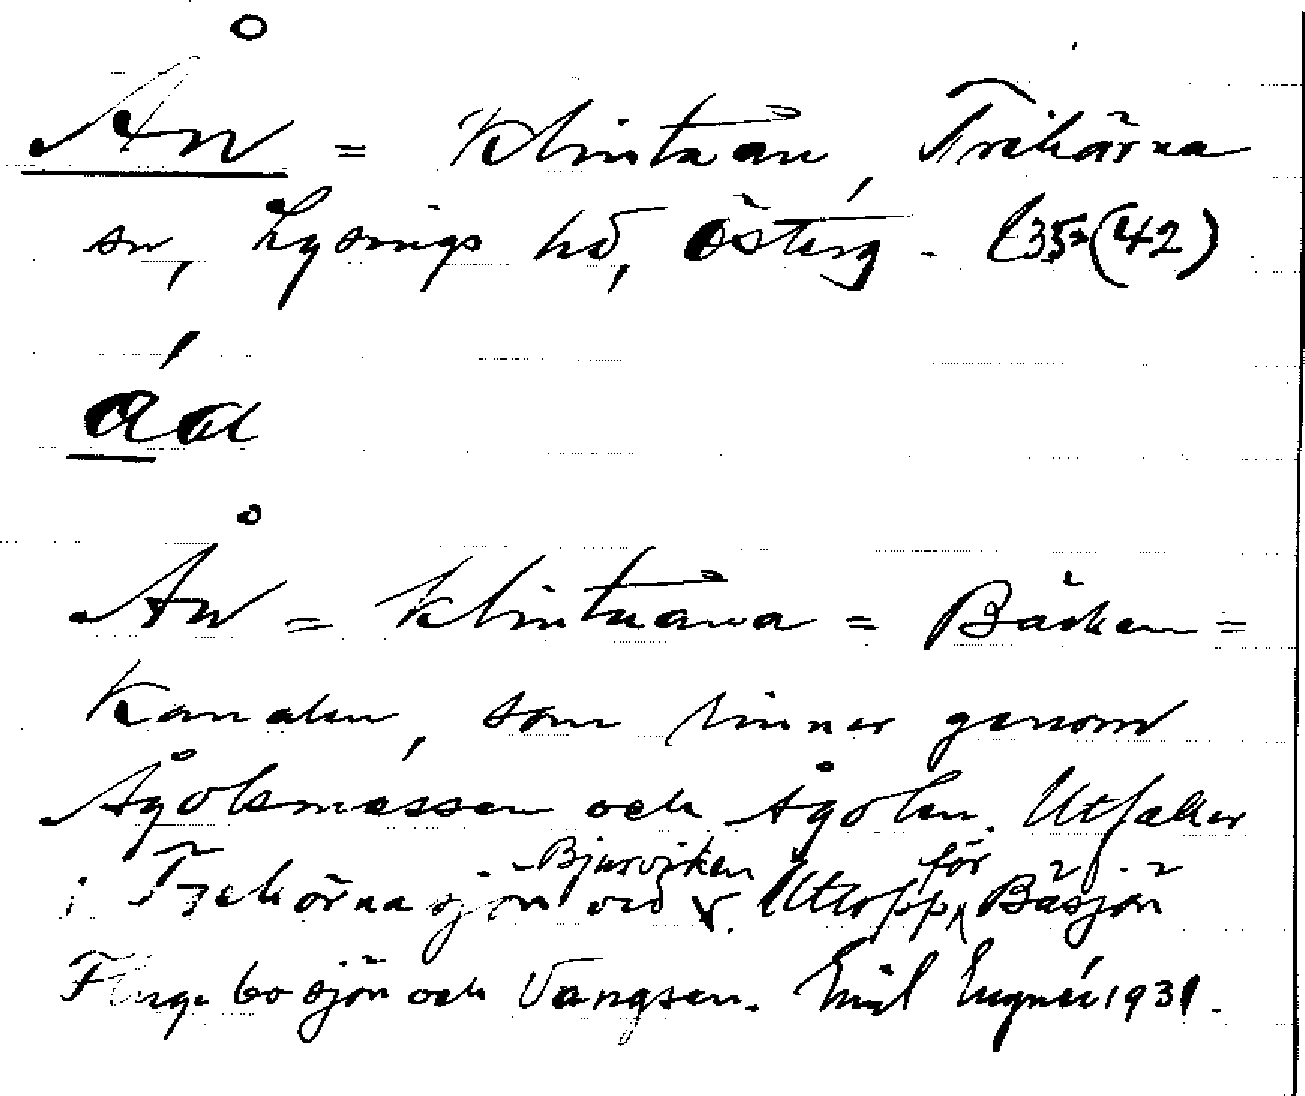 Ån = Klintaån, Trehörna
sn, Lysings hd, Österg. (42)
áa
Ån = Klintaåna = Bäcken =
Kanalen, som rinner genom
Ågölsmossen och Ågölen. Utfaller
i Trehörnasjön vid Bjurviken. Utlopp för Båsjön
Flugebosjön och Vangsen. Emil 1931.